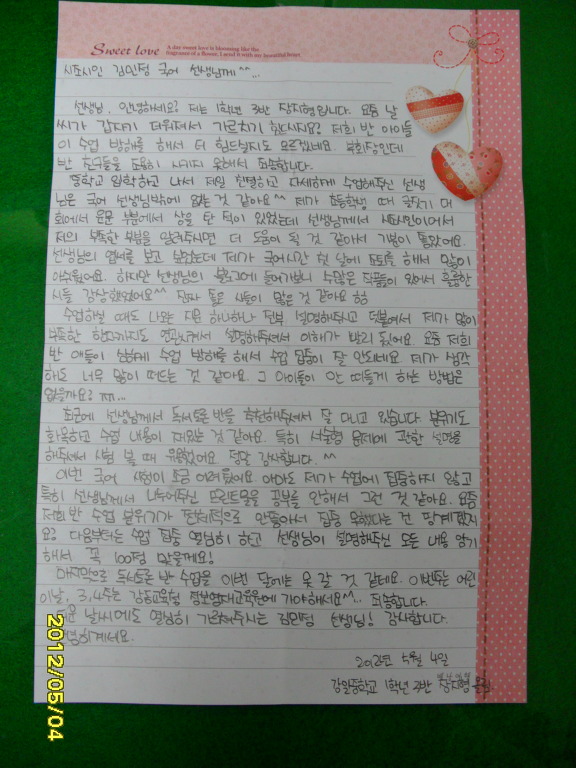 Sweet love
A day sweet love is blooming like the
fragrance of a flower. I send it with my beautiful heart.
시조시인 김민정 국어 선생님께^^...
선생님, 안녕하세요? 저는 1학년 3반 장지형입니다. 요즘 날
씨가 갑자기 더워져서 가르치기 힘드시지요? 저희 반 아이들
이 수업 방해를 해서 더 힘드실지도 모르겠네요. 부회장인데
반 친구들을 조용히 시키지 못해서 죄송합니다.
중학교 입학하고 나서 제일 친절하고 자세하게 수업해주신 선생
님은 국어 선생님밖에 없는 것 같아요^^ 제가 초등학생 때 글짓기 대
회에서 운문 부분에서 상을 탄 적이 있었는데 선생님께서 시조시인이어서
저의 부족한 부분을 알려주시면 더 도움이 될 것 같아서 기분이 좋았어요.
선생님의 엽서를 보고 싶었는데 제가 국어시간 첫 날에 조퇴를 해서 많이
아쉬웠어요. 하지만 선생님의 블로그에 들어가보니 수많은 작품이 있어서 훌륭한
시들 감상했었어요^^ 진짜 좋은 시들이 많은 것 같아요 ㅎㅎ
수업하실 때도 나오는 지문 하나하나 전부 설명해주시고 덧붙여서 제가 많이
부족한 한자까지도 연관시켜서 설명해주셔서 이해가 빨리 됬어요. 요즘 저희
반 애들이 심하게 수업 방해를 해서 수업 집중이 잘 안되네요 제가 생각
해도 너무 많이 떠드는 것 같아요. 그 아이들이 안 떠들게 하는 방법은
없을까요? ㅠㅠ...
최근에 선생님께서 독서토론 반을 추천해주셔서 잘 다니고 있습니다. 분위기도
화목하고 수업 내용이 재밌는 것 같아요. 특히 서술형 문제에 관한 설명을
해주셔서 시험 볼 때 유용했어요 정말 감사합니다. ^^
이번 국어 시험이 조금 어려웠어요 아마도 제가 수업에 집중하지 않고
특히 선생님께서 나눠주신 프린트물을 공부를 안해서 그런 것 같아요. 요즘
저희 반 수업 분위기가 전체적으로 안좋아서 집중 못했다는 건 핑계겠지
요? 다음부터는 수업 집중 열심히 하고 선생님이 설명해주신 모든 내용 암기
해서 꼭 100점 맞을게요!
마지막으로 독서토론 반 수업을 이번 달에는 못 갈 것 같데요. 이번주는 어린
이날, 3,4주는 강동교육청 정보영재교육원에 가야해서요^^.. 죄송합니다.
더운 날씨에도 열심히 가르쳐주시는 김민정 선생님! 감사합니다.
안녕히계세요.
2012년 5월 4일
강일중학교 1학년 3반 장지형 올림
2012/05/04